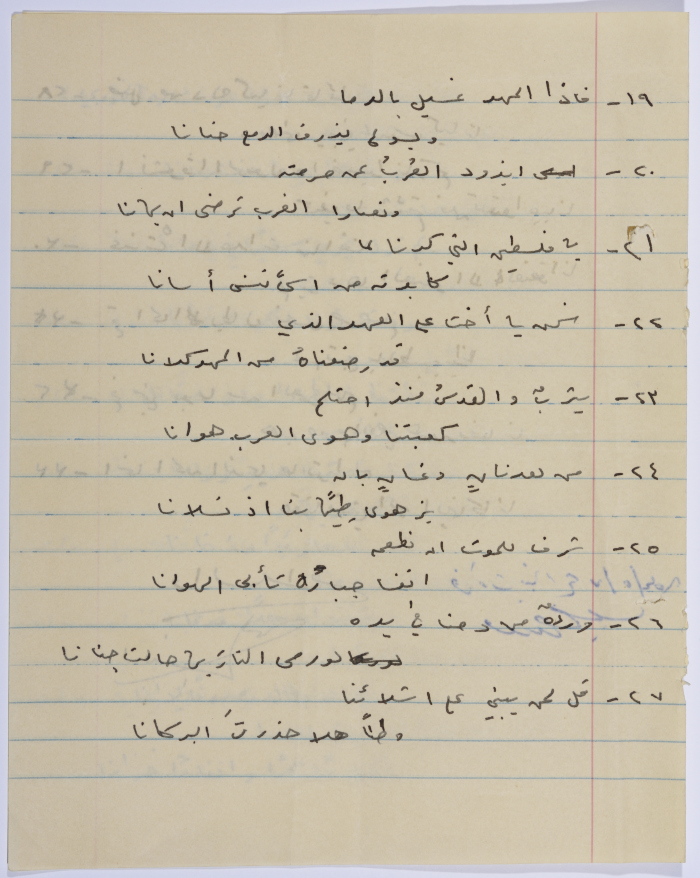 ١٩- فاذا المهد غسيل بالدما
ويسوع يذرف الدمع حنانا
٢٠- ايذود الغُربُ عن حرمته
ونصارا الغرب ترضى ان يهانا
٢١- يا فلسطين التي كدنا لما
كابدته من اسىً ننسى أسانا
٢٢- نحن يا أخت على العهد الذي
قد رضعناهُ من المهد كلانا
٢٣- يثربٌ والقدسُ منذ احتلم
كعبتنا وهوى العرب هوانا
٢٤- من لعدنانٍ وغسانٍ بان
يزهوى بنا اذ نسلانا
٢٥- شرف للموت ان نطعمه
انفسا جبارةً تأبى الهوانا
٢٦- وردةٌ من دمنا في يده
لو رمى النار بها حالت جنانا
٢٧- قل لمن يبني على اشلائنا
وطناً هلا حذرتَ البركانا